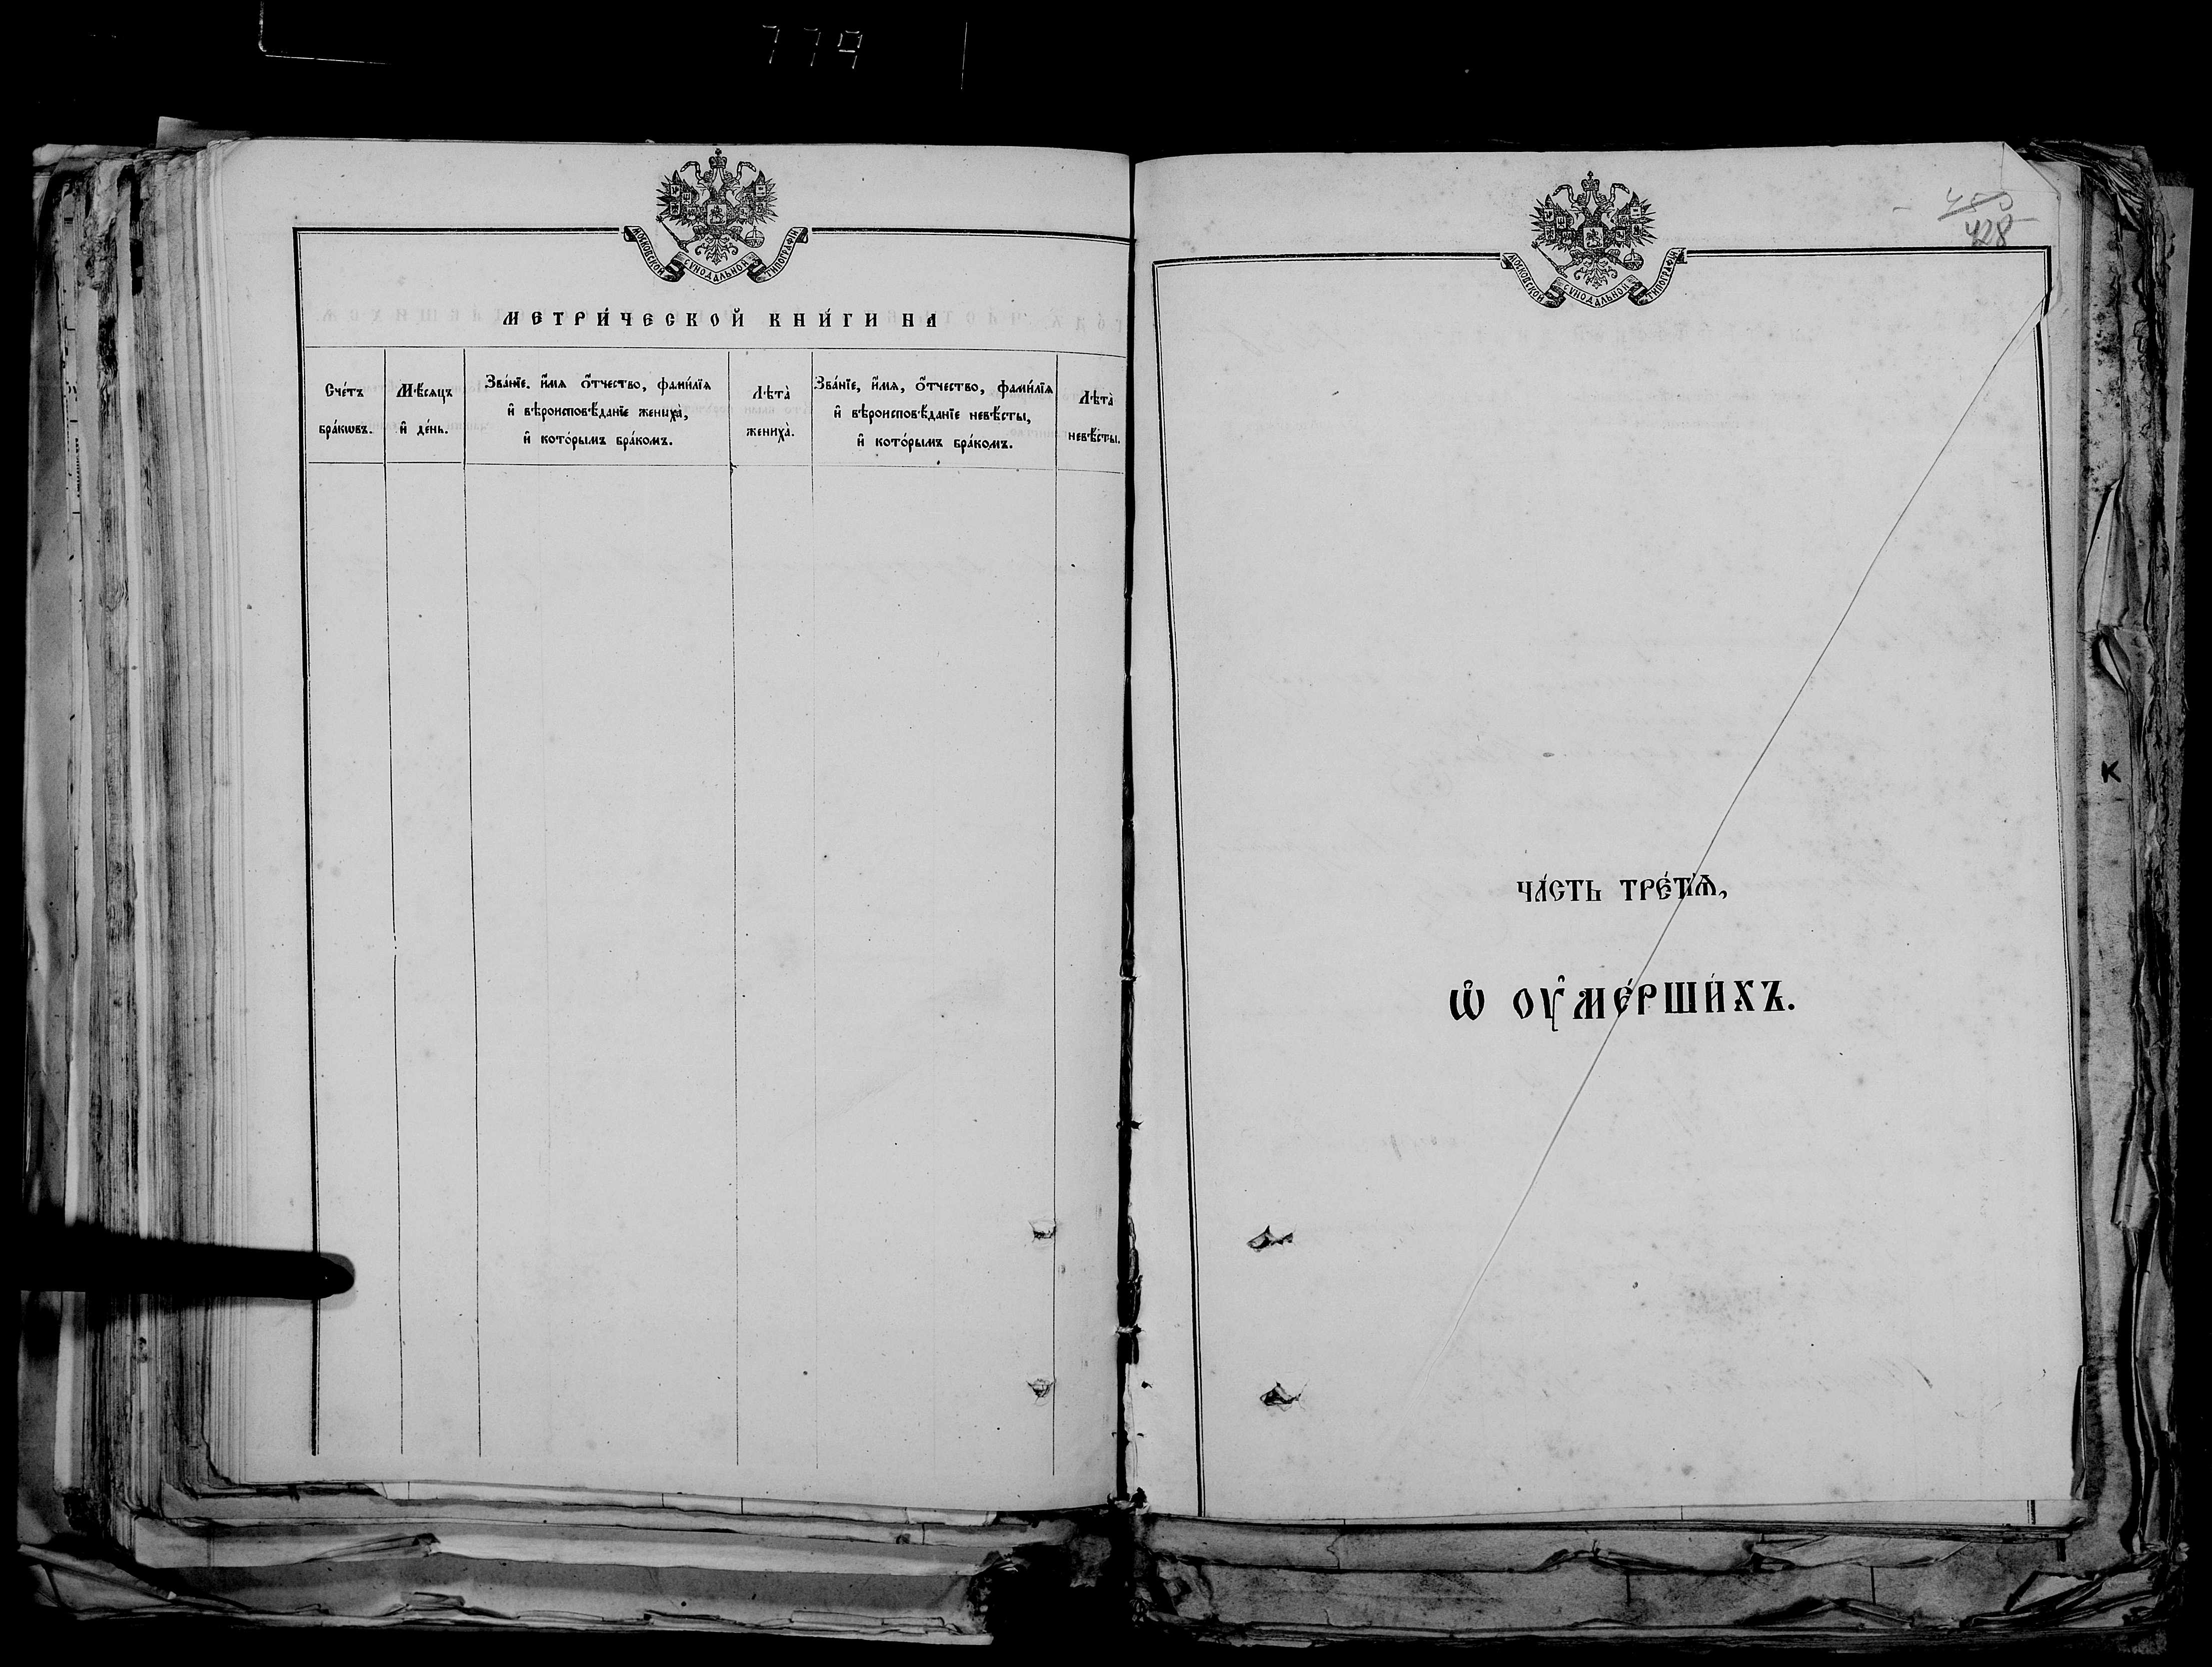 779
МОСКОВСКОЙ СѴНОДАЛЬНОЙ ТИПОГРАФІИ
МЕТРИ́ЧЕСКОЙ КНИ́ГИ НА
Сче́тъ бра́кѡвъ.
Мѣ́сѧцъ и҆ де́нь.
Зва́нїе. и҆́мѧ ѻ҆́тчество, фами́лїѧ
и҆ вѣроисповѣ́данїе жениха̀,
и҆ кото́рымъ бра́комъ.
Лѣта̀ жениха̀.
Зва́нїе, и҆́мѧ, ѻ҆́тчество, фами́лїѧ
и҆ вѣроисповѣ́данїе невѣ́сты,
и҆ кото́рымъ бра́комъ.
Лѣта̀ невѣ́сты.
428
МОСКОВСКОЙ СѴНОДАЛЬНОЙ ТИПОГРАФІИ
ЧА́СТЬ ТРЕ́ТЇѦ,
Ѡ҆ ОУ҆МЕ́РШИ́ХЪ.
К